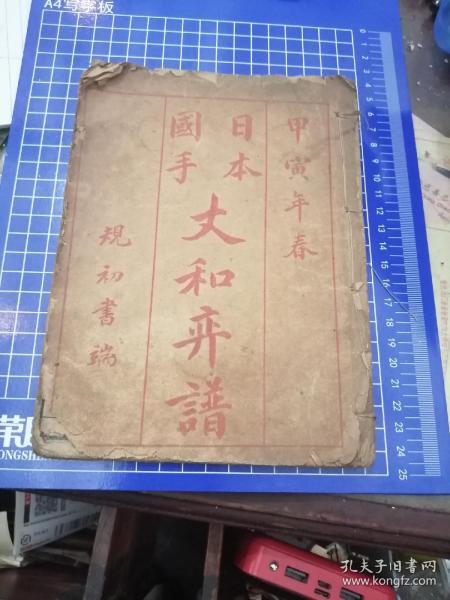 A4写字板
甲寅年春
日本
國手
丈和弈譜
規初書端
0
1
2
3
4
5
6
7
8
9
10
11
12
13
14
15
16
17
18
19
20
21
22
23
24
25
孔夫子旧书网
www.kongfz.com